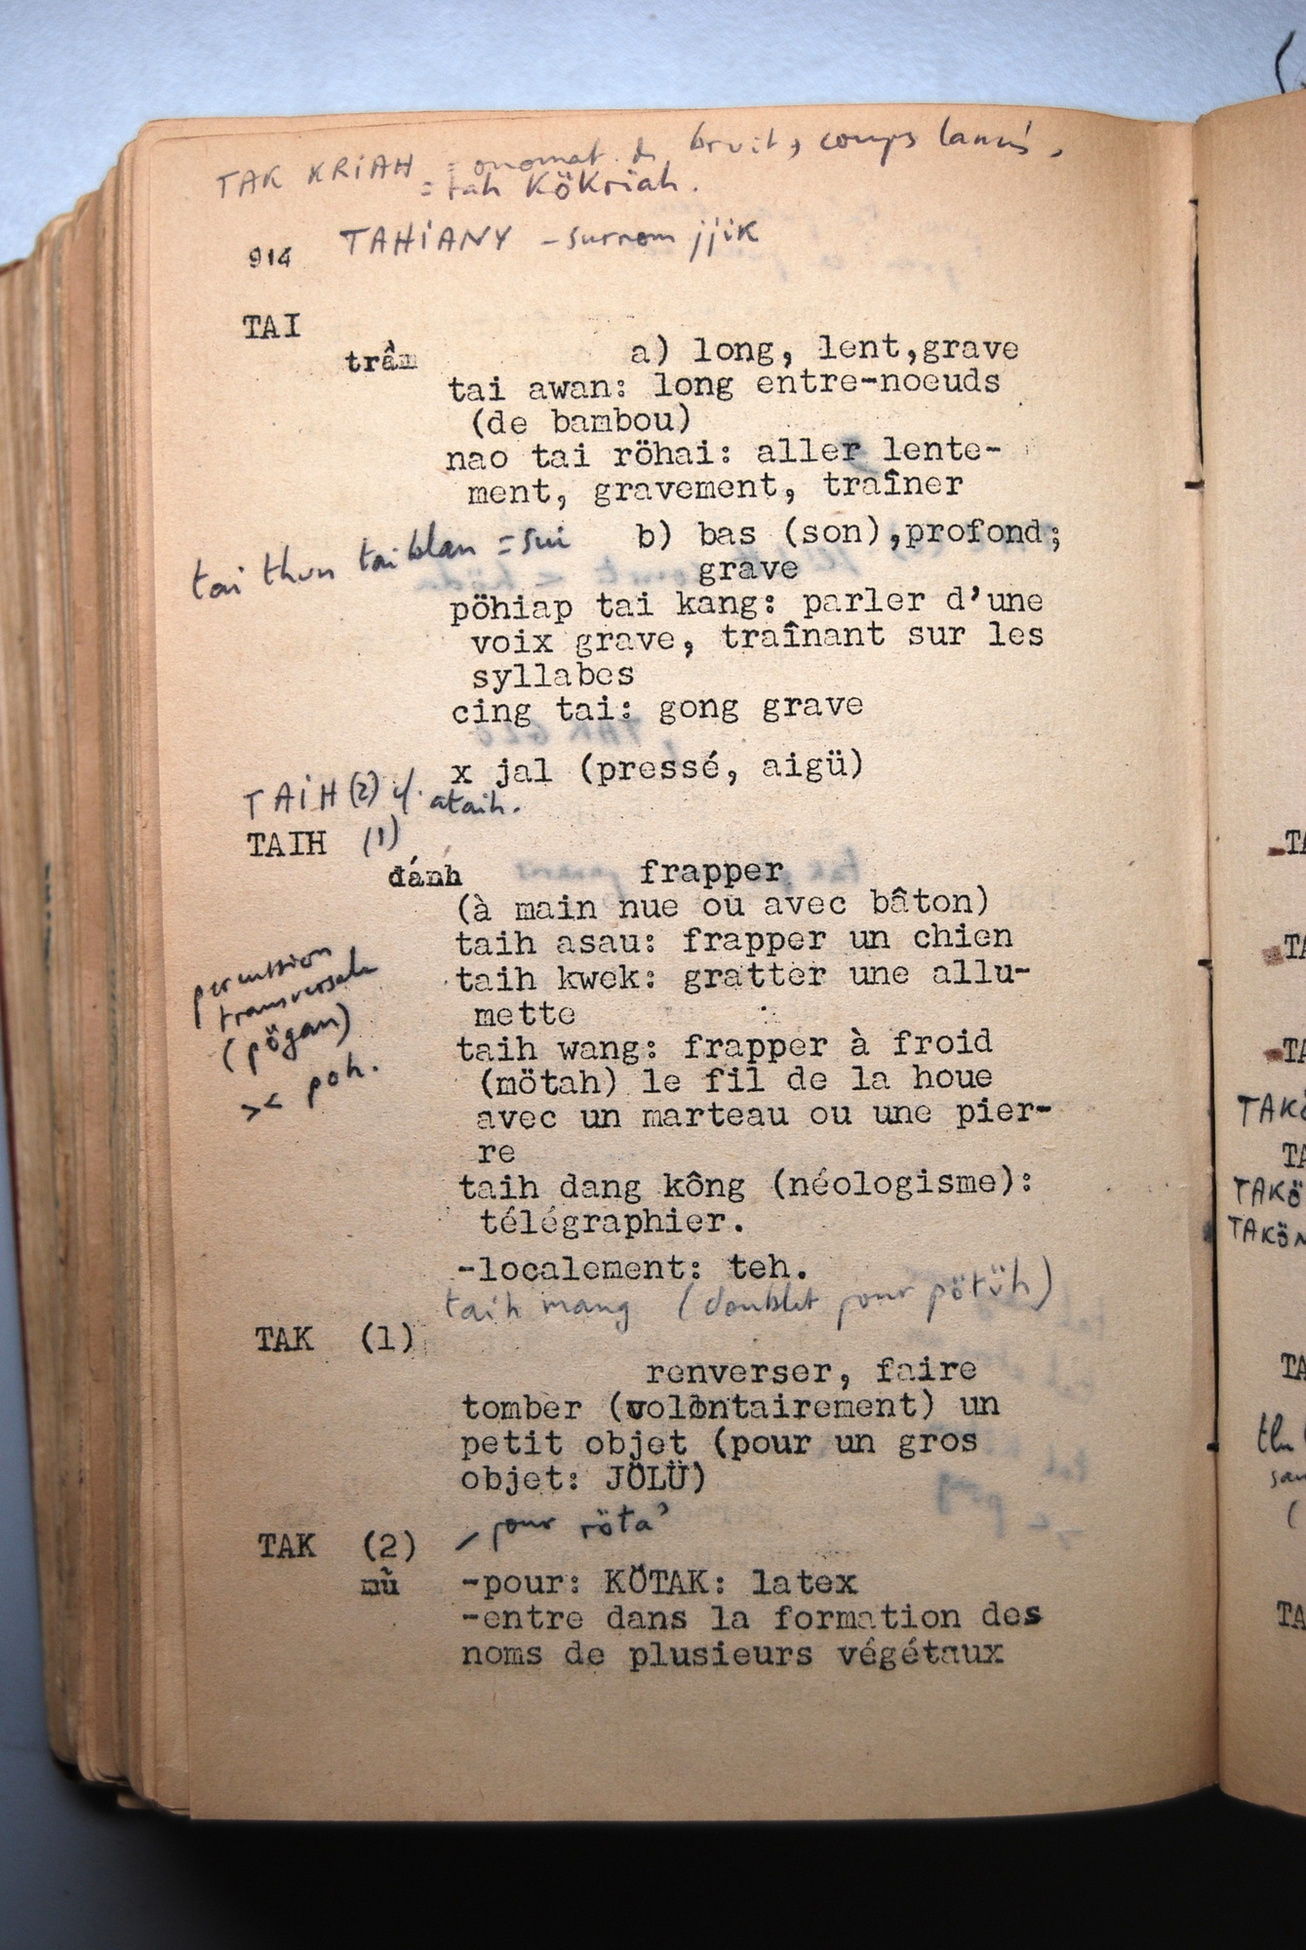 TAK KRIAH = onomat. de bruit, coups lancés,
= tah kökriah.
914 TAHIANY - surnom jjik
TAI
trầm a) long, lent,grave
tai awan: long entre-noeuds
(de bambou)
nao tai röhai: aller lente-
ment, gravement, traîner
tai thun tai blan = sui b) bas (son),profond;
grave
pöhiap tai kang: parler d'une
voix grave, traînant sur les
syllabes
cing tai: gong grave
x jal (pressé, aigü)
TAIH (2) cf. ataih.
TAIH (1)
đánh frapper
(à main nue ou avec bâton)
taih asau: frapper un chien
percussion
transversale
(pögan)
>< poh.
taih kwek: gratter une allu-
mette
taih wang: frapper à froid
(mötah) le fil de la houe
avec un marteau ou une pier-
re
taih dang kông (néologisme):
télégraphier.
-localement: teh.
taih mang (doublet pour pötüh)
TAK (1)
renverser, faire
tomber (volontairement) un
petit objet (pour un gros
objet: JÖLÜ)
TAK (2) - pour röta'
mủ -pour: KÖTAK: latex
-entre dans la formation des
noms de plusieurs végétaux
TA
TA
TA
TAKÖ
TA
TAKÖ
TAKÖN
TA
TA